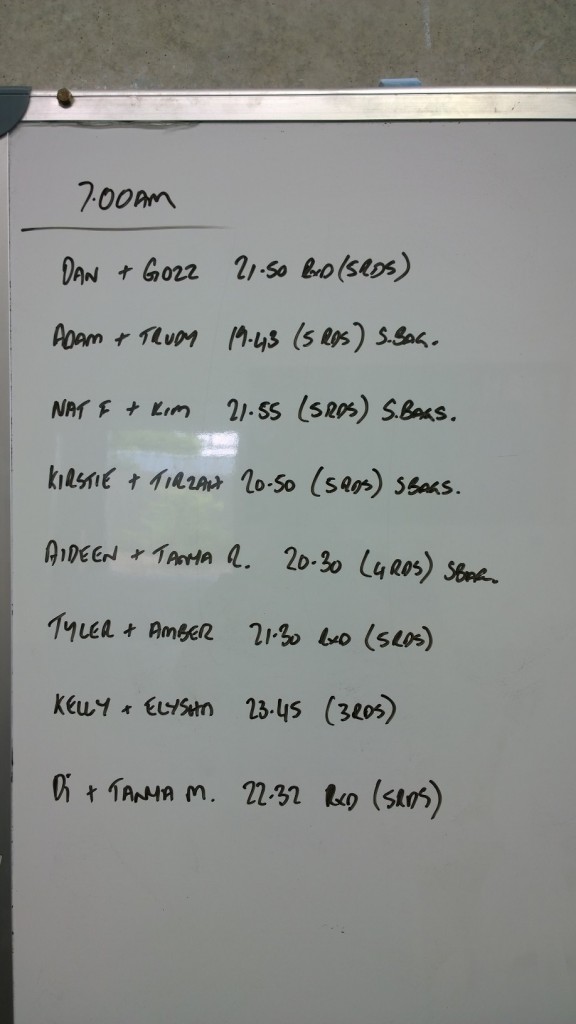 7.00AM
DAN + GOZZ 21.50 RXD (5RDS)
ADAM + TRUDY 19.43 (5 RDS) S.BAG.
NAT F + KIM 21.55 (5RDS) S.BAGS.
KIRSTIE + TIRZAH 20.50 (5RDS) SBAGS.
AIDEEN + TANYA R. 20.30 (4RDS) SBAG.
TYLER + AMBER 21.30 RXD (5RDS)
KELLY + ELYSHA 23.45 (3RDS)
Di + TANYA M. 22.32 RXD (5RDS)